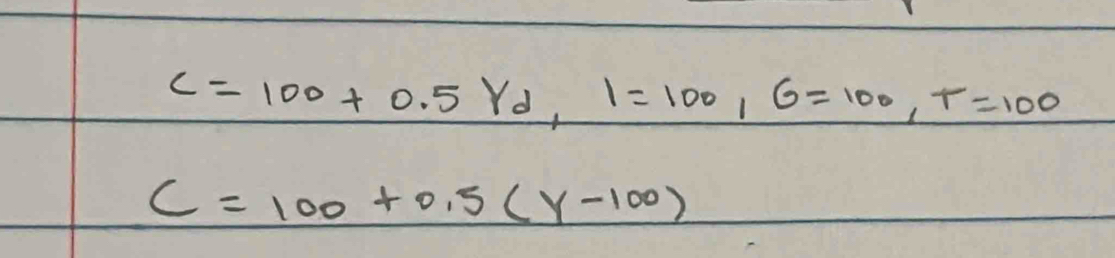 C = 100 + 0.5 Yd, I = 100, G = 100, T = 100
C = 100 + 0.5 (Y - 100)